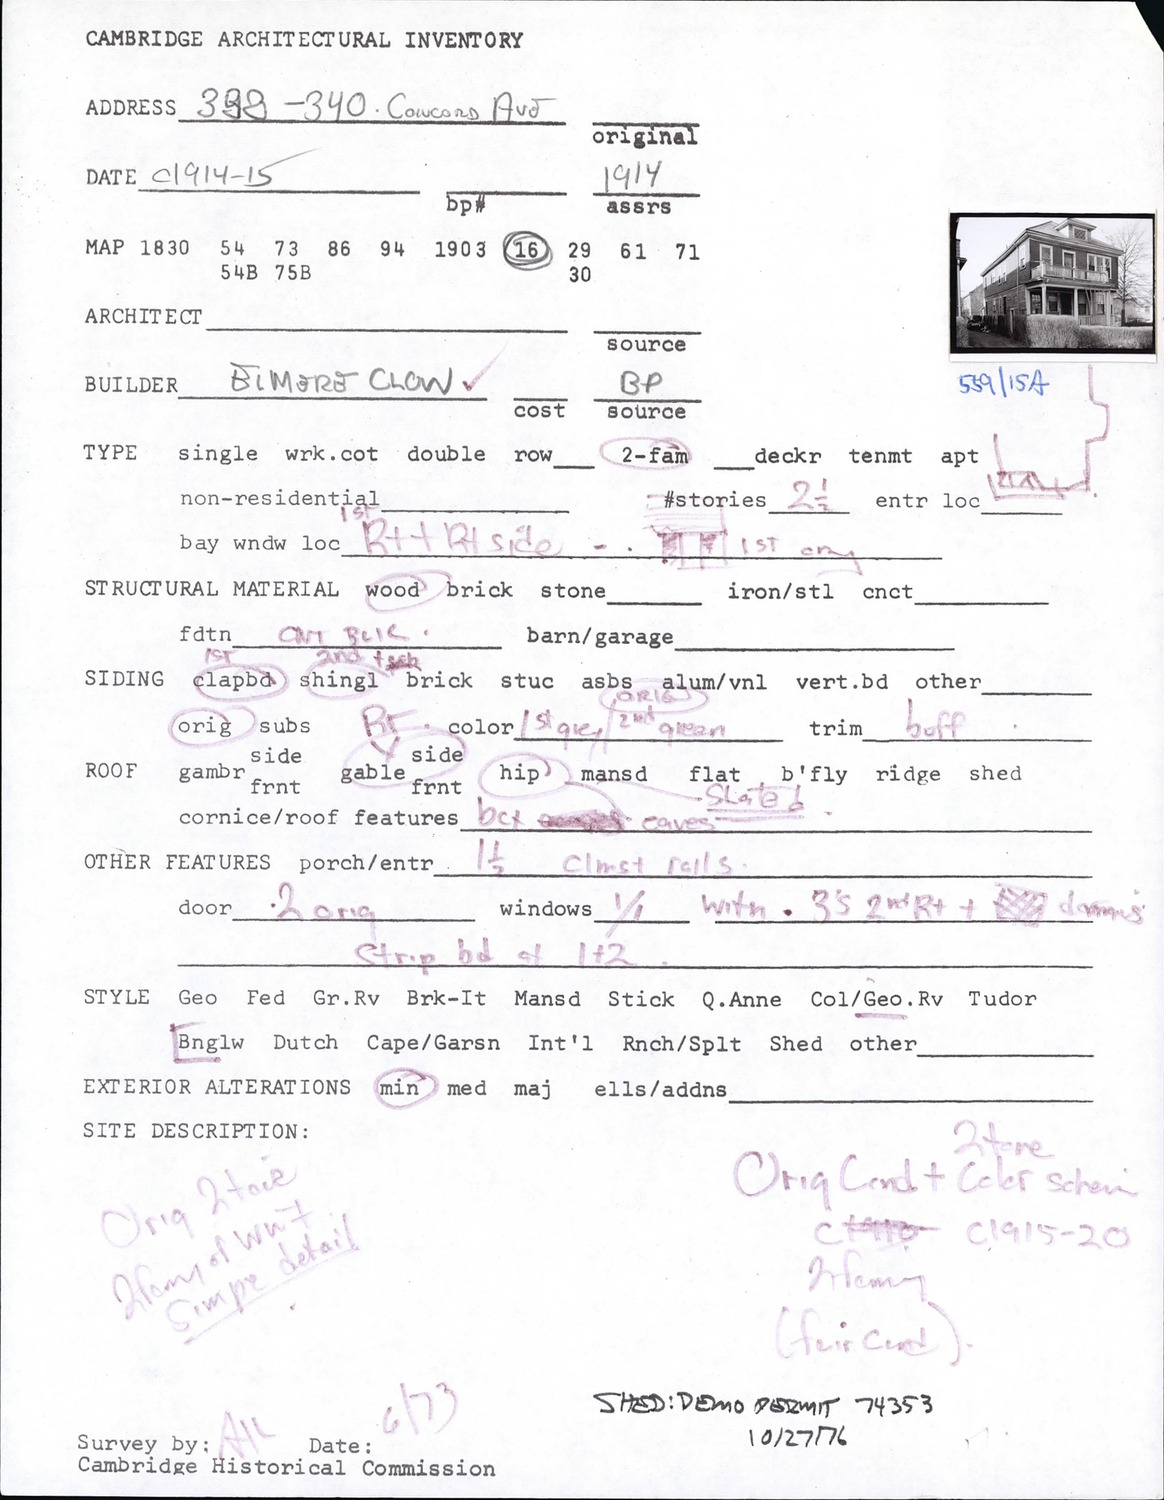 CAMBRIDGE ARCHITECTURAL INVENTORY
ADDRESS 338-340. CONCORD AVE
original
DATE c1914-15 1914
bp# assrs
MAP 1830 54 73 86 94 1903 16 29 61 71
54B 75B 30
ARCHITECT
source
BUILDER ELMERE CLOW ✓ BP
cost source
559/15A
TYPE single wrk.cot double row 2-fam deckr tenmt apt
non-residential #stories 2½ entr loc
1ST
bay wndw loc Rt + Rt side - . 1ST
STRUCTURAL MATERIAL wood brick stone iron/stl cnct
fdtn CNT BLK. barn/garage
1ST 2nd +
SIDING clapbd shingl brick stuc asbs alum/vnl vert.bd other
ORIG
orig subs RF. color 1st grey/2nd green trim buff
ROOF gambr side frnt gable side frnt hip mansd flat b'fly ridge shed
Slated
cornice/roof features box eaves
OTHER FEATURES porch/entr. 1½ clmst rails.
door 2 orig windows 1/1 with . 3's 2nd Rt +
Strip bd at 1+2.
STYLE Geo Fed Gr.Rv Brk-It Mansd Stick Q.Anne Col/Geo.Rv Tudor
Bnglw Dutch Cape/Garsn Int'l Rnch/Splt Shed other
EXTERIOR ALTERATIONS min med maj ells/addns
SITE DESCRIPTION:
2 tone
Orig Cond + Color schem
c1910 c1915-20
2 family
(fair cond).
Orig 2 tone
2 family of
simple detail
SHED: DEMO PERMIT 74353
10/27/76
Survey by: Date: 6/73
Cambridge Historical Commission